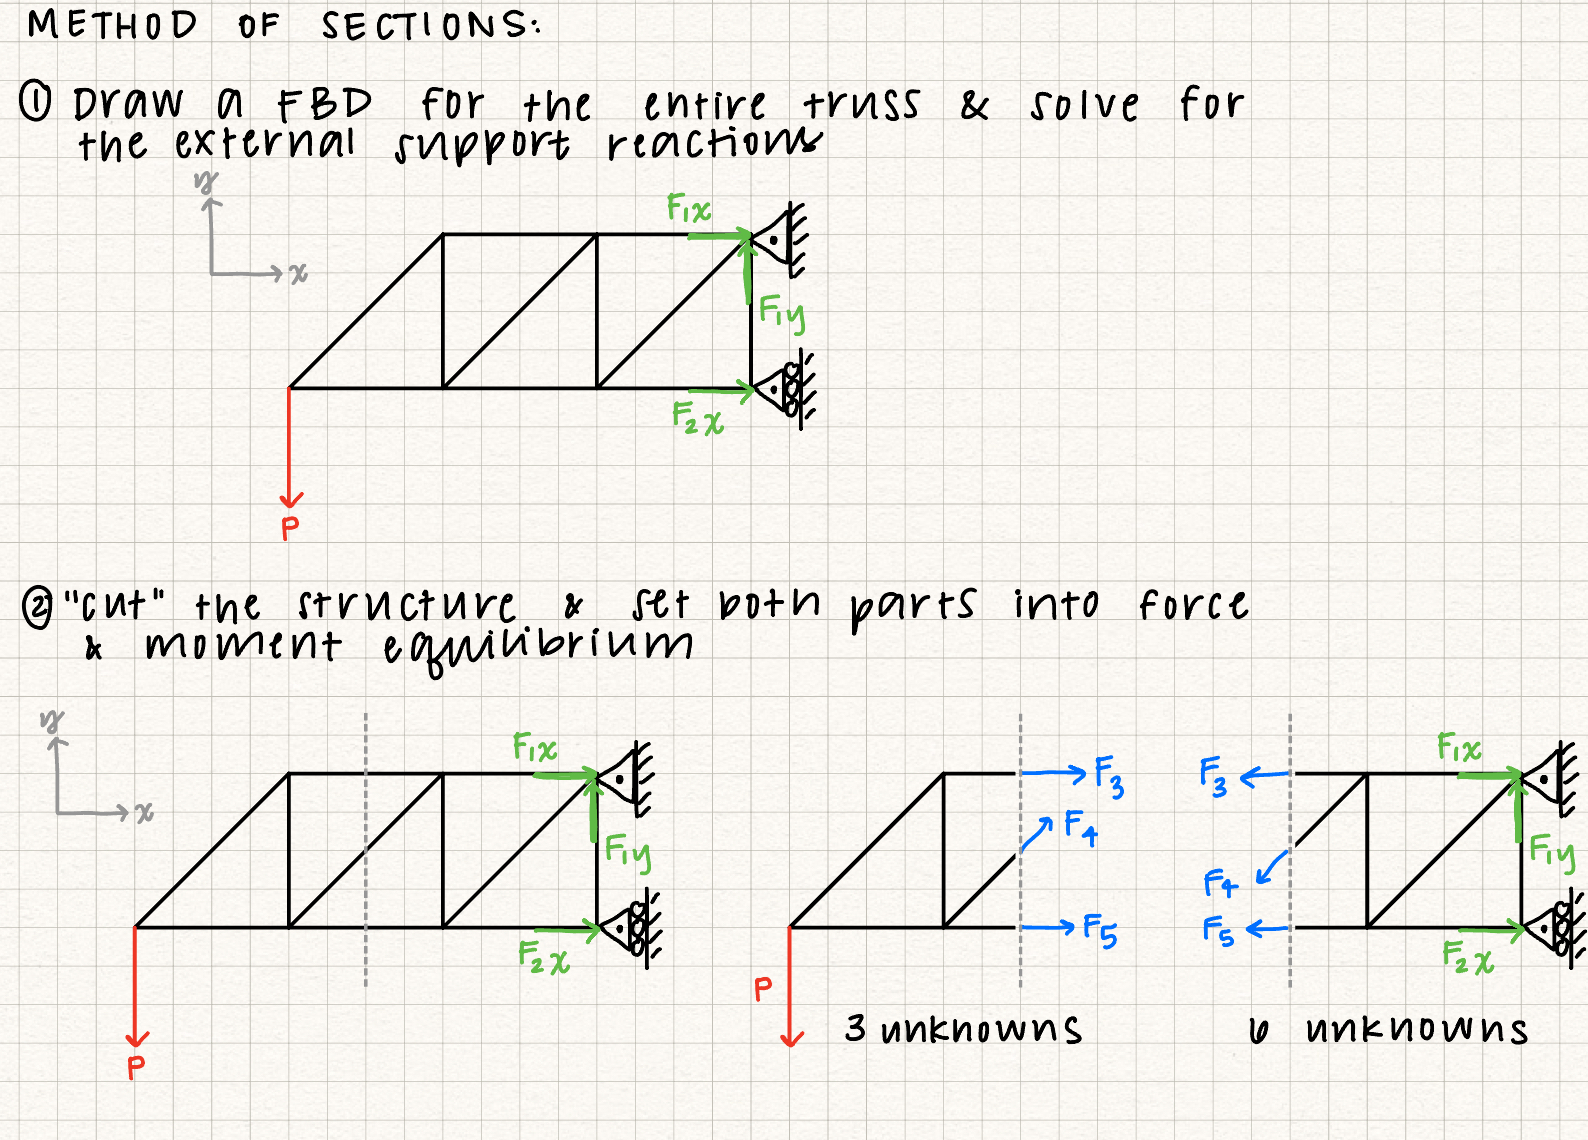 METHOD OF SECTIONS:
① Draw a FBD for the entire truss & solve for
the external support reactions
y
x
F₁x
F₁y
F₂x
P
② "cut" the structure & set both parts into force
& moment equilibrium
y
x
F₁x
F₁y
F₂x
P
F₃
F₄
F₅
P
3 unknowns
F₃
F₄
F₅
F₁x
F₁y
F₂x
6 unknowns